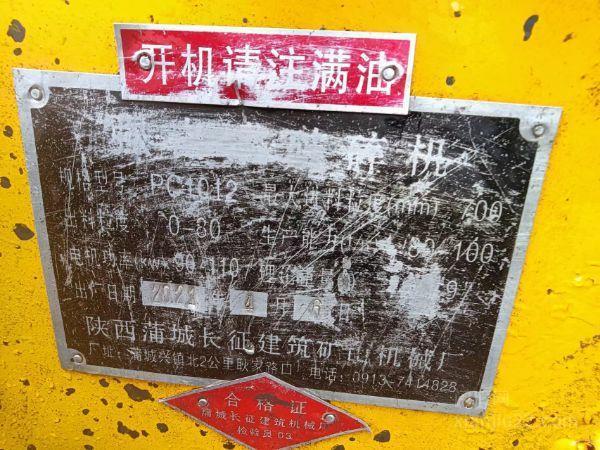 开机请注满油
碎机
规格型号 PC1012 最大进料粒度(mm) 700
出料粒度 0-80 生产能力 80-100
电机功率(KW) 90/110
出厂日期 202 年 4 月 6 日
陕西蒲城长征建筑矿山机械厂
厂址:蒲城兴镇北2公里耿家路口 电话:0913-7414828
合格证
蒲城长征建筑机械厂
检验员03